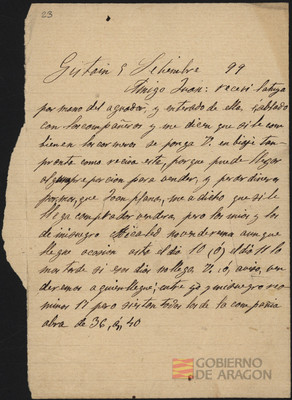 23
Gistain 5 Setiembre 99
Amigo Juan: receví la tuya
por mano del aguador, y enterado de ella hablado
con los compañeros y me dicen que si te com
bienen los carneros se ponga V. en biaje tan
pronto como reciva esta, porque puede llegar
alguna preparcion para vender, y
porque, que Juan plana, me a dicho que si le
llega comprador vendera, pero los mios y los
de mi suegro no venderema aunque
llegue ocasion asta el dia 10 (ó) el dia 11 lo
mas tarde si esos dias no llega V. ó, aviso, ven
deremos a quien llegue; entre yo y mi suegro
minos 17 pero sistan todos los de la compañia
abra de 36, á, 40
GOBIERNO
DE ARAGON